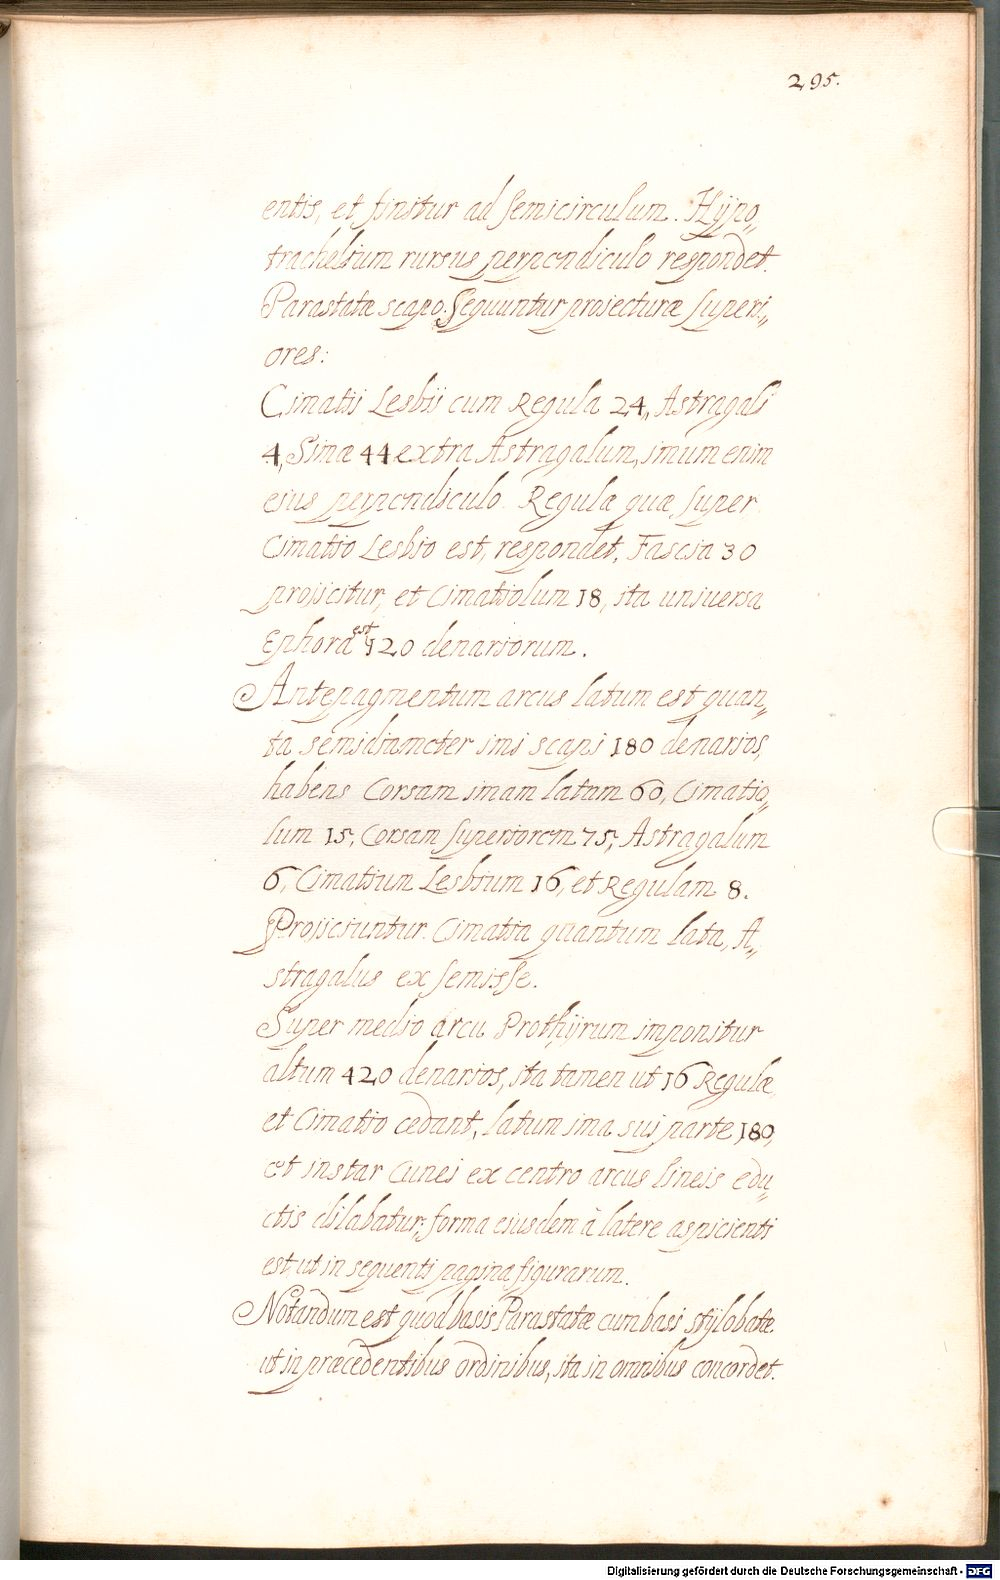 295.
entis, et finitur ad semicirculum. Hÿpo„
trachelium rursus perpendiculo respondet.
Parastatæ scapo. Sequuntur projecturæ superi„
ores:
Cimatii Lesbii cum Regula 24, Astragali
4, Simæ 44 extra Astragalum, imum enim
eius perpendiculo Regulæ quæ super
Cimatio Lesbio est, respondet, Fascia 30
projicitur, et Cimatiolum 18, ita universa
Ephora est 120 denariorum.
Antepagmentum arcus latum est quan„
ta semidiameter imi scapi 180 denarios,
habens Corsam imam latam 60, Cimatio„
lum 15, Corsam superiorem 75, Astragalum
6, Cimatium Lesbium 16, et Regulam 8.
Projiciuntur Cimatia quantum lata, A„
stragalus ex semisse.
Super medio arcu Prothÿrum imponitur
altum 420 denarios, ita tamen ut 16 Regulæ
et Cimatio cedant, latum ima sui parte 180,
et instar Cunei ex centro arcus lineis edu„
ctis dilabatur; forma eiusdem à latere aspicienti
est, ut in sequenti pagina figurarum.
Notandum est quod basis Parastatæ cum basi stÿlobatæ.
ut in præcedentibus ordinibus, ita in omnibus concordet.
Digitalisierung gefördert durch die Deutsche Forschungsgemeinschaft - DFG